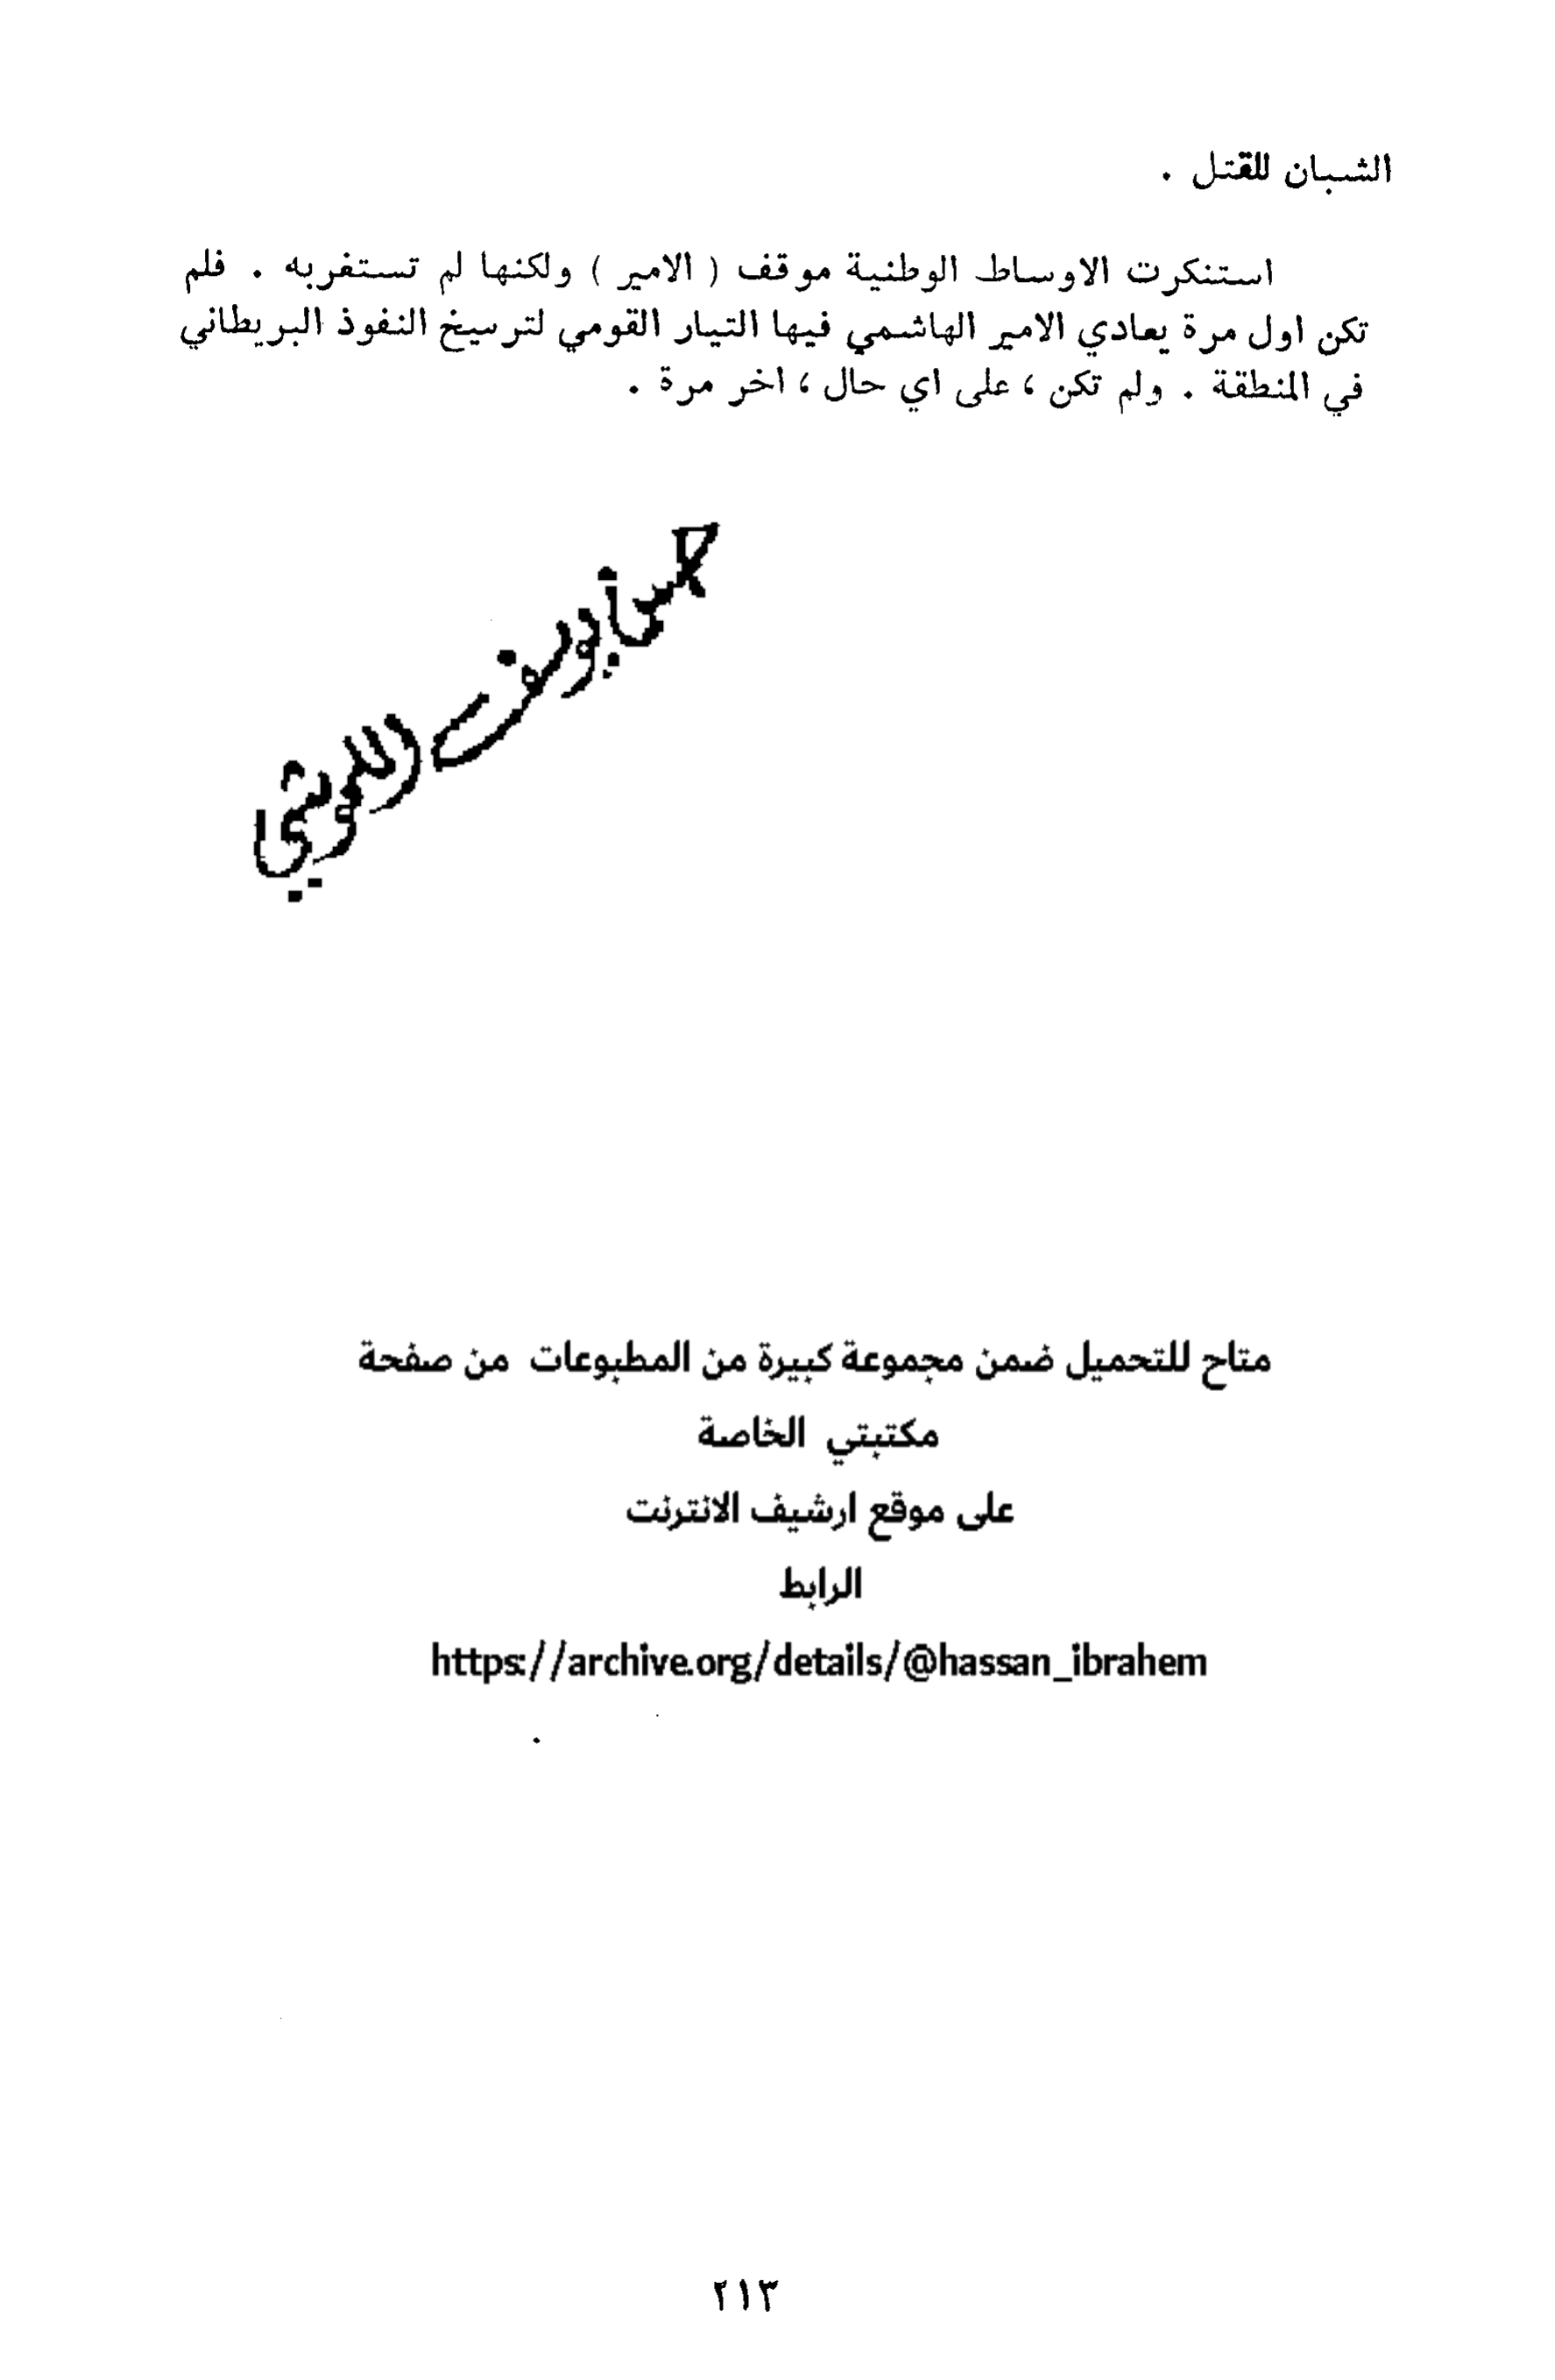 الشبان للقتل .
استنكرت الاوساط الوطنية موقف ( الامير ) ولكنها لم تستغربه . فلم
تكن اول مرة يعادي الامير الهاشمي فيها التيار القومي لترسيخ النفوذ البريطاني
في المنطقة . ولم تكن ، على اي حال ، اخر مرة .
متاح للتحميل ضمن مجموعة كبيرة من المطبوعات من صفحة
مكتبتي الخاصة
على موقع ارشيف الانترنت
الرابط
https://archive.org/details/@hassan_ibrahem
٢١٣